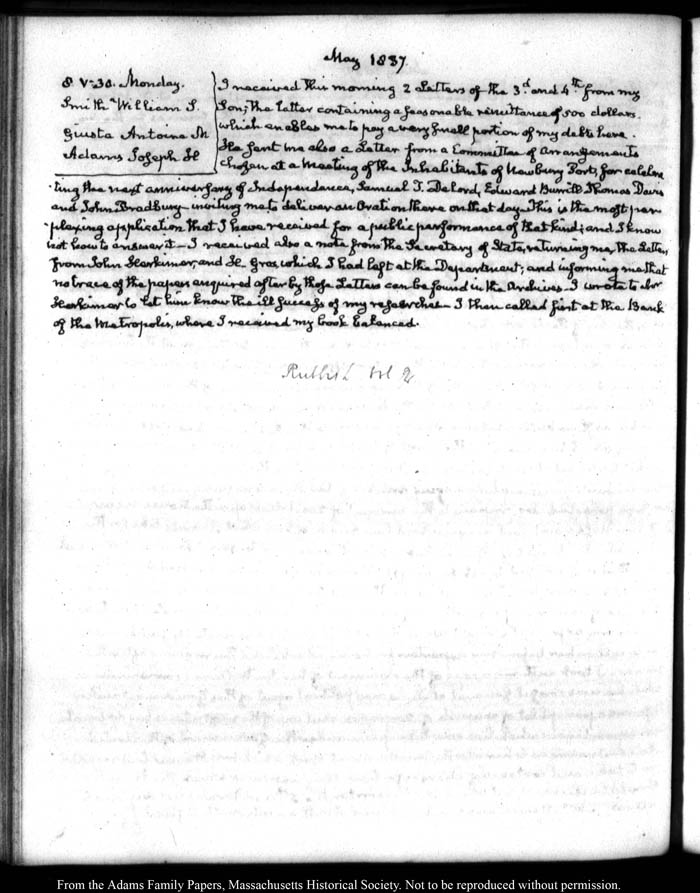 May 1837.
8. V-30. Monday.
Smith William S.
Giusta Antoine M
Adams Joseph H
I received this morning 2 Letters of the 3.d and 4th from my
Son; the latter containing a seasonable remittance of 500 dollars.
which enables me to pay a very small portion of my debts here.
He sent me also a Letter from a Committee of arrangements
chosen at a Meeting of the Inhabitants of Newbury Port, for celebra
-ting the next anniversary of Independence, Samuel T. DeFord, Edward Burrill Thomas Davis
and John Bradbury inviting me to deliver an Oration there on that day—This is the most per
-plexing application that I have received for a public performance of that kind; and I know
not how to answer it—I received also a note from the Secretary of State, returning me, the Letters,
from John Harkimer, and H. Gros, which I had left at the Department; and informing me that
no trace of the papers enquired after by those Letters can be found in the Archives—I wrote to Mr
Herkimer to let him know the ill success of my researches—I then called first at the Bank
of the Metropolis, where I received my book balanced.
Rubbish vol 2
From the Adams Family Papers, Massachusetts Historical Society. Not to be reproduced without permission.